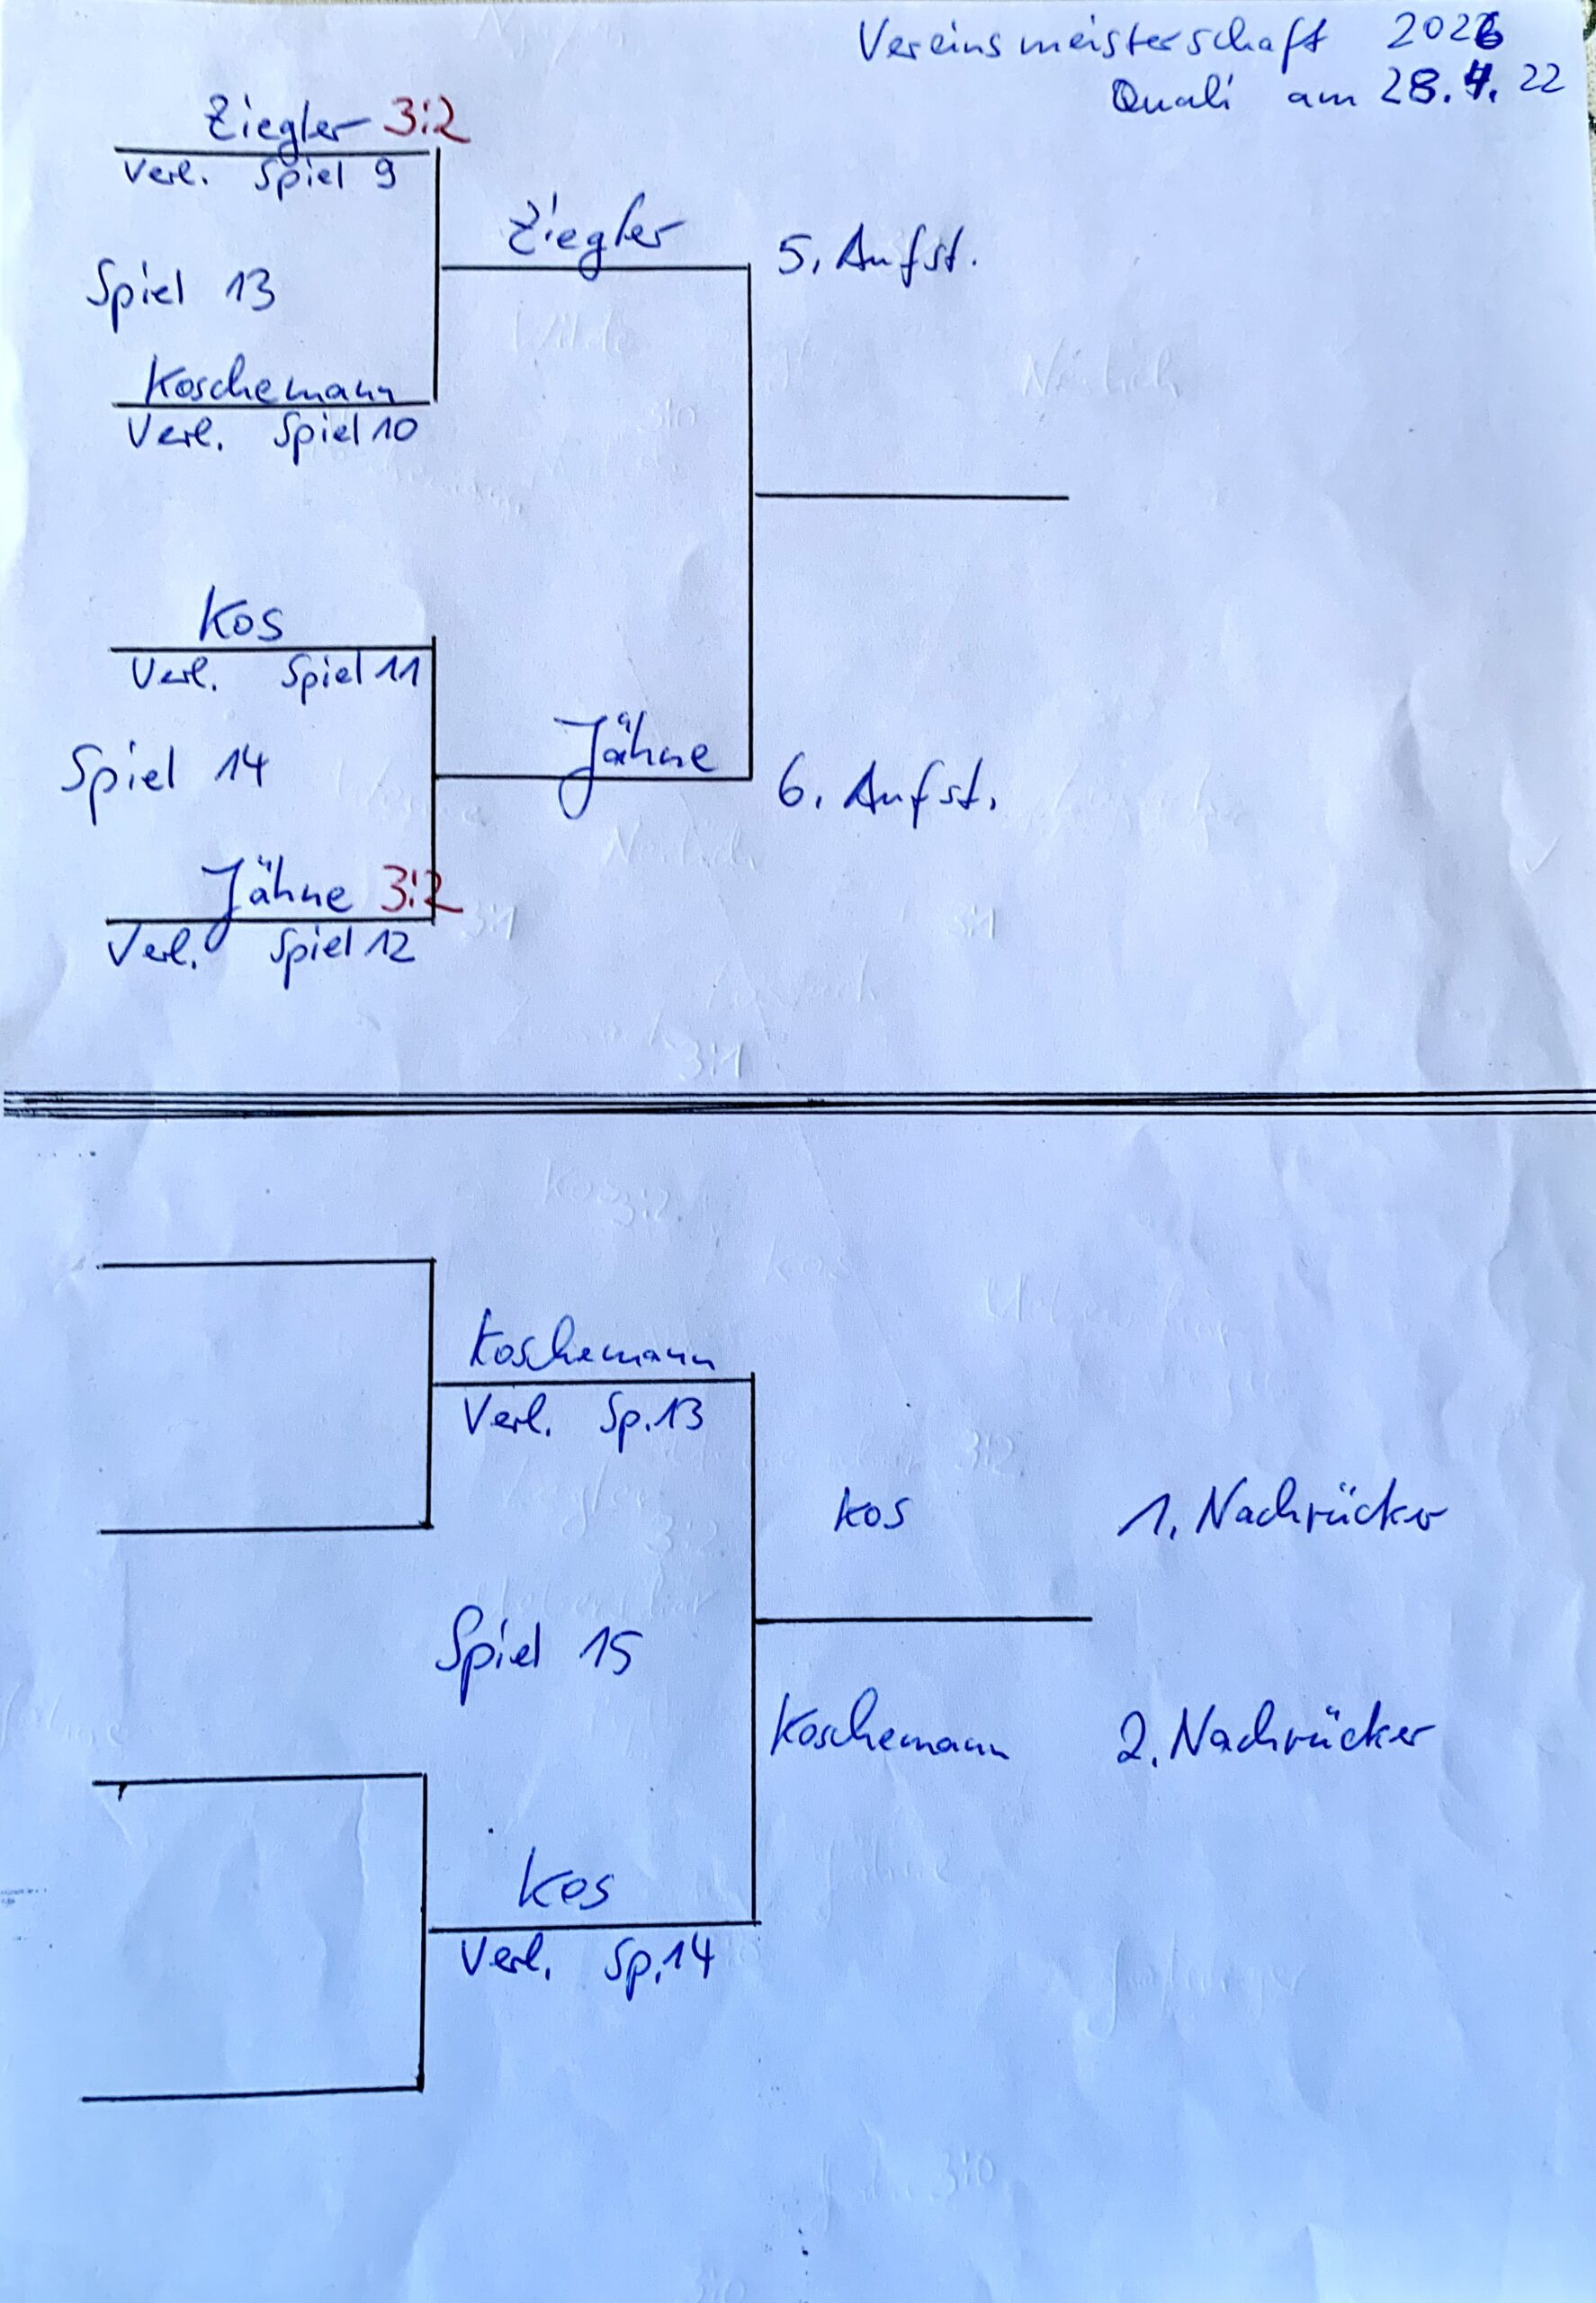 Vereinsmeisterschaft 2026
Quali am 28.4.22
Ziegler 3:2
Verl. Spiel 9
Ziegler
5. Aufst.
Spiel 13
Koschemann
Verl. Spiel 10
Kos
Verl. Spiel 11
Jähne
6. Aufst.
Spiel 14
Jähne 3:2
Verl. Spiel 12
Koschemann
Verl. Sp. 13
Kos
1. Nachrücker
Spiel 15
Koschemann
2. Nachrücker
Kos
Verl. Sp. 14